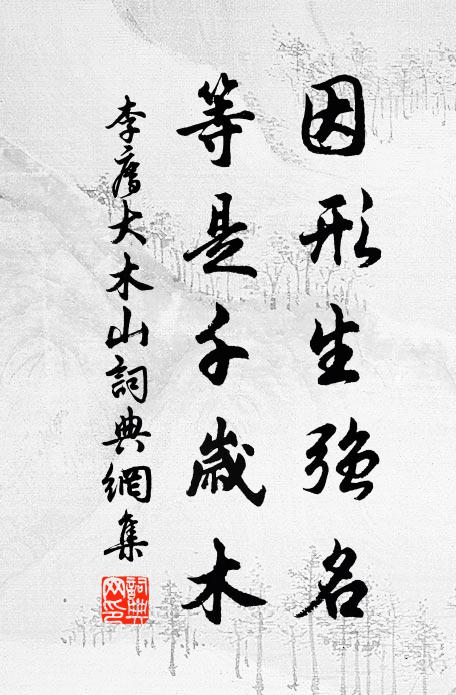 因形生強名
等是千歲木
李廌大木山詞典網集
詞典网印